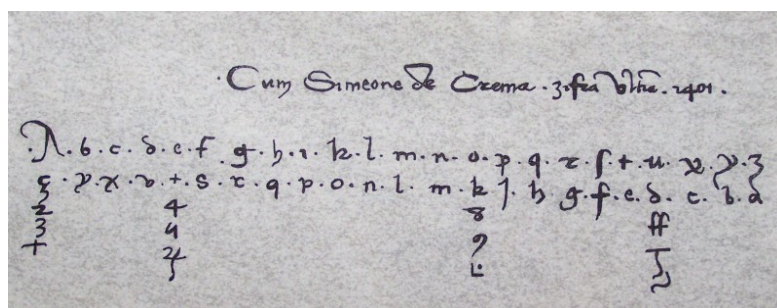 .Cum Simeone de Crema . 1401.
.A.b.c.d.e.f.g.h.i.k.l.m.n.o.p.q.r.s.t.u.x.y.z
z.y.x.v.t.s.r.q.p.o.n.l.m.k.j.h.g.f.e.d.c.b.a
2 4 8 ff
3 4 2
+ 4